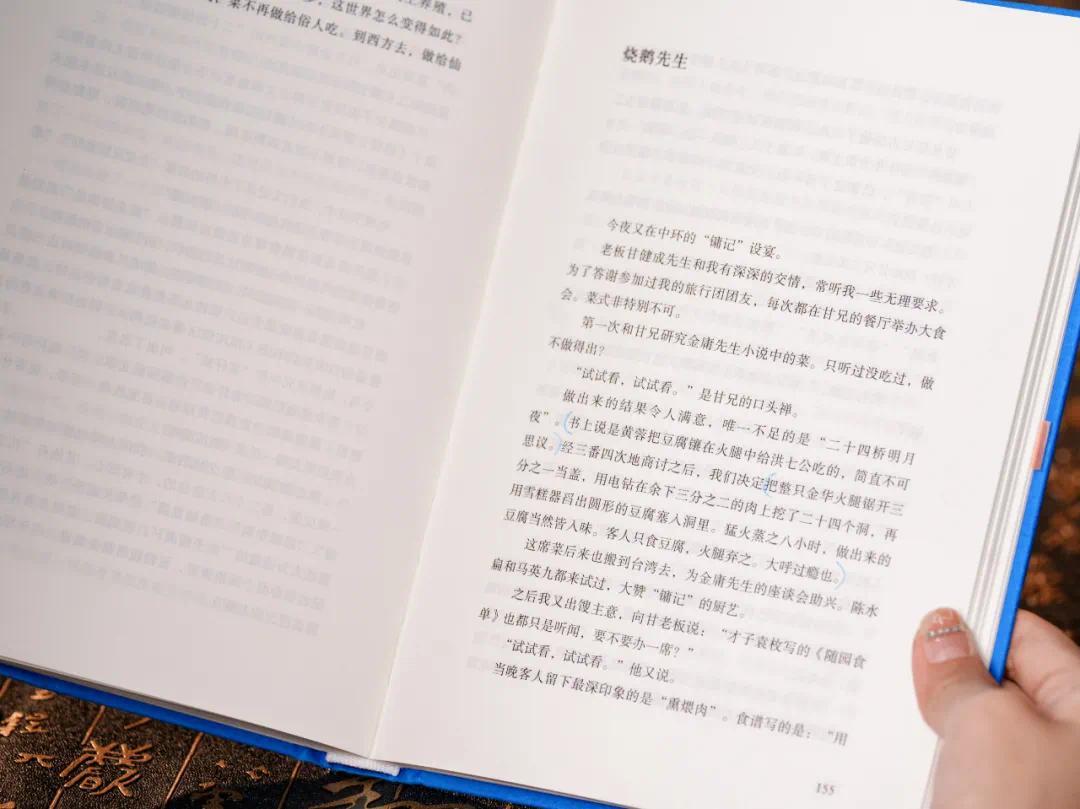 上养殖，已
，这世界怎么变得如此？
菜不再做给俗人吃。到西方去，做给仙
烧鹅先生
今夜又在中环的“镛记”设宴。
老板甘健成先生和我有深深的交情，常听我一些无理要求。
为了答谢参加过我的旅行团团友，每次都在甘兄的餐厅举办大食
会。菜式非特别不可。
第一次和甘兄研究金庸先生小说中的菜。只听过没吃过，做
不做得出？
“试试看，试试看。”是甘兄的口头禅。
做出来的结果令人满意，唯一不足的是“二十四桥明月
夜”。书上说是黄蓉把豆腐镶在火腿中给洪七公吃的，简直不可
思议。经三番四次地商讨之后，我们决定把整只金华火腿锯开三
分之一当盖，用电钻在余下三分之二的肉上挖了二十四个洞，再
用雪糕器舀出圆形的豆腐塞入洞里。猛火蒸之八小时，做出来的
豆腐当然皆入味。客人只食豆腐，火腿弃之。大呼过瘾也。
这席菜后来也搬到台湾去，为金庸先生的座谈会助兴。陈水
扁和马英九都来试过，大赞“镛记”的厨艺。
之后我又出馊主意，向甘老板说：“才子袁枚写的《随园食
单》也都只是听闻，要不要办一席？”
“试试看，试试看。”他又说。
当晚客人留下最深印象的是“熏煨肉”。食谱写的是：“用
155